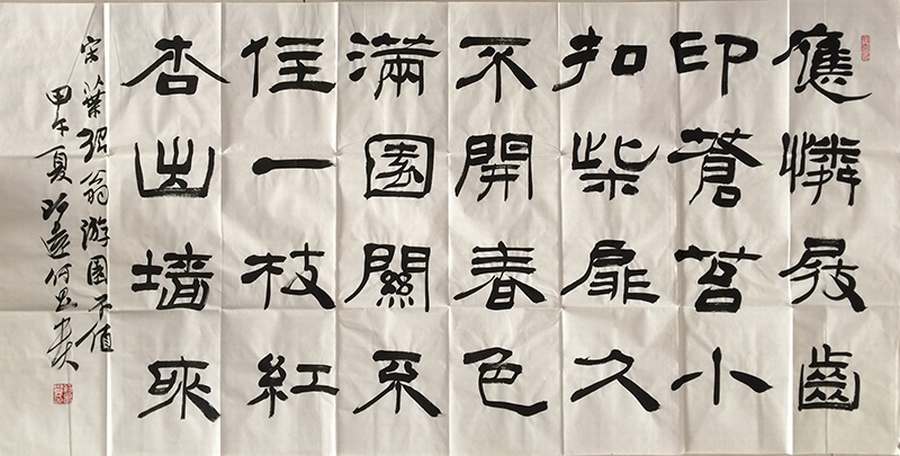 應憐屐齒
印蒼苔小
扣柴扉久
不開春色
滿園關不
住一枝紅
杏出墻來
宋葉紹翁游園不值
甲午夏